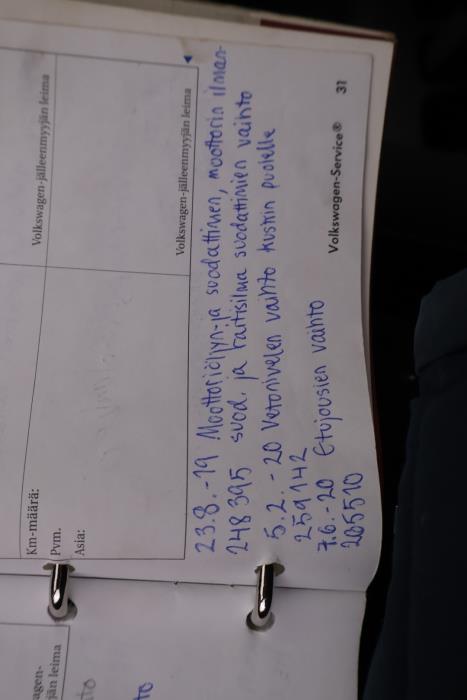 Volkswagen-jälleenmyyjän leima
Km-määrä:
Pvm.
Asia:
Volkswagen-jälleenmyyjän leima
23.8.-19 Moottoriöljyn-ja suodattimen, moottorin ilman-
248395 suod. ja raitisilma suodattimien vaihto
5.2.-20 Vetonivelen vaihto kuskin puolelle
259142
7.6.-20 Etujousien vaihto
265510
Volkswagen-Service® 31
agen-
jän leima
to
to